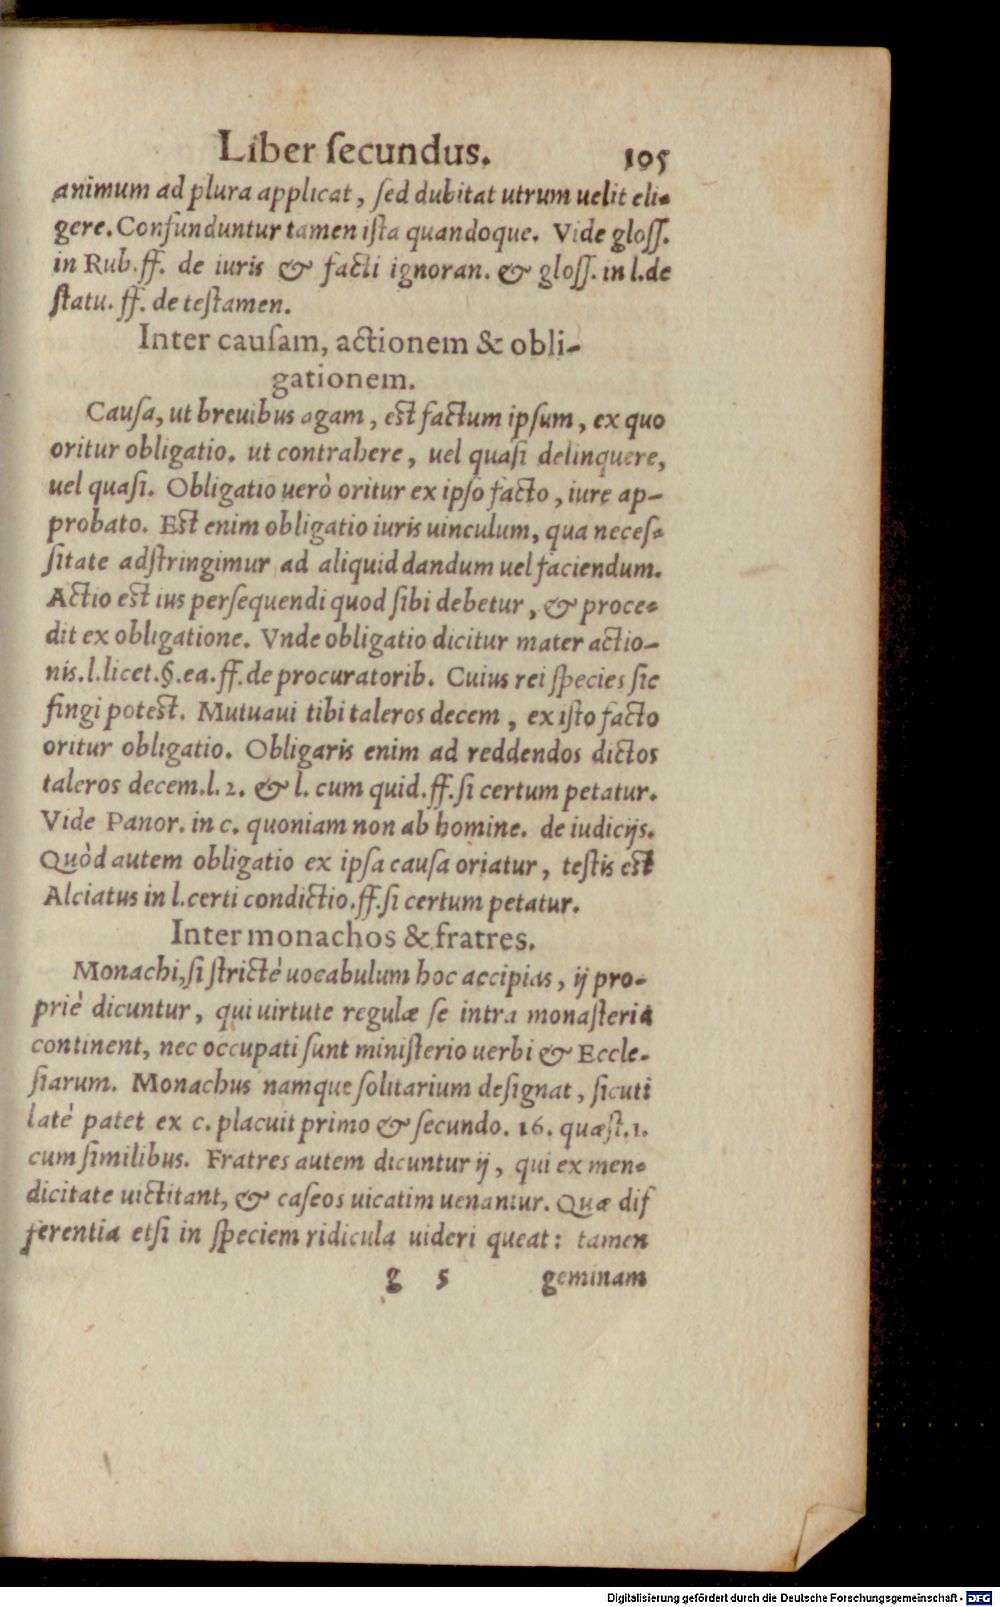 Liber ſecundus. 105
animum ad plura applicat, ſed dubitat utrum uelit eli-
gere. Confunduntur tamen iſta quandoque. Vide gloſſ.
in Rub. ff. de iuris & facti ignoran. & gloſſ. in l. de
ſtatu. ff. de teſtamen.
Inter cauſam, actionem & obli-
gationem.
Cauſa, ut breuibus agam, eſt factum ipſum, ex quo
oritur obligatio. ut contrahere, uel quaſi delinquere,
uel quaſi. Obligatio uerò oritur ex ipſo facto, iure ap-
probato. Eſt enim obligatio iuris uinculum, qua neceſ-
ſitate adſtringimur ad aliquid dandum uel faciendum.
Actio eſt ius perſequendi quod ſibi debetur, & proce-
dit ex obligatione. Vnde obligatio dicitur mater actio-
nis. l. licet. §. ea. ff. de procuratorib. Cuius rei ſpecies ſic
fingi poteſt. Mutuaui tibi taleros decem, ex iſto facto
oritur obligatio. Obligaris enim ad reddendos dictos
taleros decem. l. 2. & l. cum quid. ff. ſi certum petatur.
Vide Panor. in c. quoniam non ab homine. de iudicijs.
Quòd autem obligatio ex ipſa cauſa oriatur, teſtis eſt
Alciatus in l. certi condictio. ff. ſi certum petatur.
Inter monachos & fratres.
Monachi, ſi ſtrictè uocabulum hoc accipias, ij pro-
priè dicuntur, qui uirtute regulæ ſe intra monaſteria
continent, nec occupati ſunt miniſterio uerbi & Eccle-
ſiarum. Monachus namque ſolitarium deſignat, ſicuti
latè patet ex c. placuit primo & ſecundo. 16. quæſt. 1.
cum ſimilibus. Fratres autem dicuntur ij, qui ex men-
dicitate uictitant, & caſeos uicatim uenantur. Quæ dif
ferentia etſi in ſpeciem ridicula uideri queat: tamen
g 5 geminam
Digitalisierung gefördert durch die Deutsche Forschungsgemeinschaft - DFG